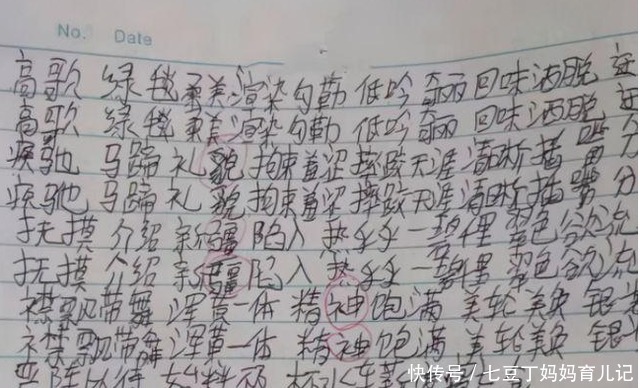 No. Date
高歌 绿毯 柔美 渲染 勾勒 低吟 奇丽 回味 洒脱
高歌 绿毯 柔美 渲染 勾勒 低吟 奇丽 回味 洒脱
疾驰 马蹄 礼貌 拘束 羞涩 摔跤 天涯 清晰 描 分
疾驰 马蹄 礼貌 拘束 羞涩 摔跤 天涯 清晰 描 分
抚摸 介绍 新疆 陷入 热乎乎 一碧千里 翠色欲流
抚摸 介绍 新疆 陷入 热乎乎 一碧千里 翠色欲流
襟飘带舞 浑黄一体 精神饱满 美轮美奂 银
襟飘带舞 浑黄一体 精神饱满 美轮美奂 银
严阵以待
快传号/七豆丁妈妈育儿记